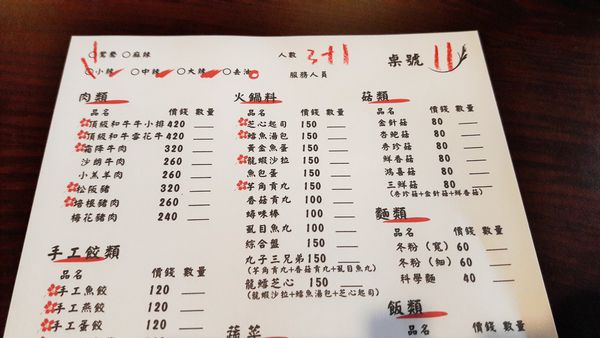 鴛鴦 麻辣 人數 3+1 桌號 11
小辣 中辣 大辣 去油 服務人員
肉類
品名 價錢 數量
頂級和牛牛小排 420
頂級和牛雪花牛 420
霜降牛肉 320
沙朗牛肉 260
小羔羊肉 260
松阪豬 320
培根豬肉 260
梅花豬肉 240
手工餃類
品名 價錢 數量
手工魚餃 120
手工燕餃 120
手工蛋餃 120
火鍋料
品名 價錢 數量
芝心起司 150
鱈魚湯包 150
黃金魚蛋 150
龍蝦沙拉 150
魚包蛋 150
芋角貢丸 150
香菇貢丸 100
蟳味棒 100
虱目魚丸 100
綜合盤 150
丸子三兄弟 150
(芋角貢丸+香菇貢丸+虱目魚丸)
龍鱈芝心 150
(龍蝦沙拉+鱈魚湯包+芝心起司)
蔬菜
菇類
品名 價錢 數量
金針菇 80
杏鮑菇 80
秀珍菇 80
鮮香菇 80
鴻喜菇 80
三鮮菇 80
(秀珍菇+金針菇+鮮香菇)
麵類
品名 價錢 數量
冬粉(寬) 60
冬粉(細) 60
科學麵 40
飯類
品名 價錢 數量